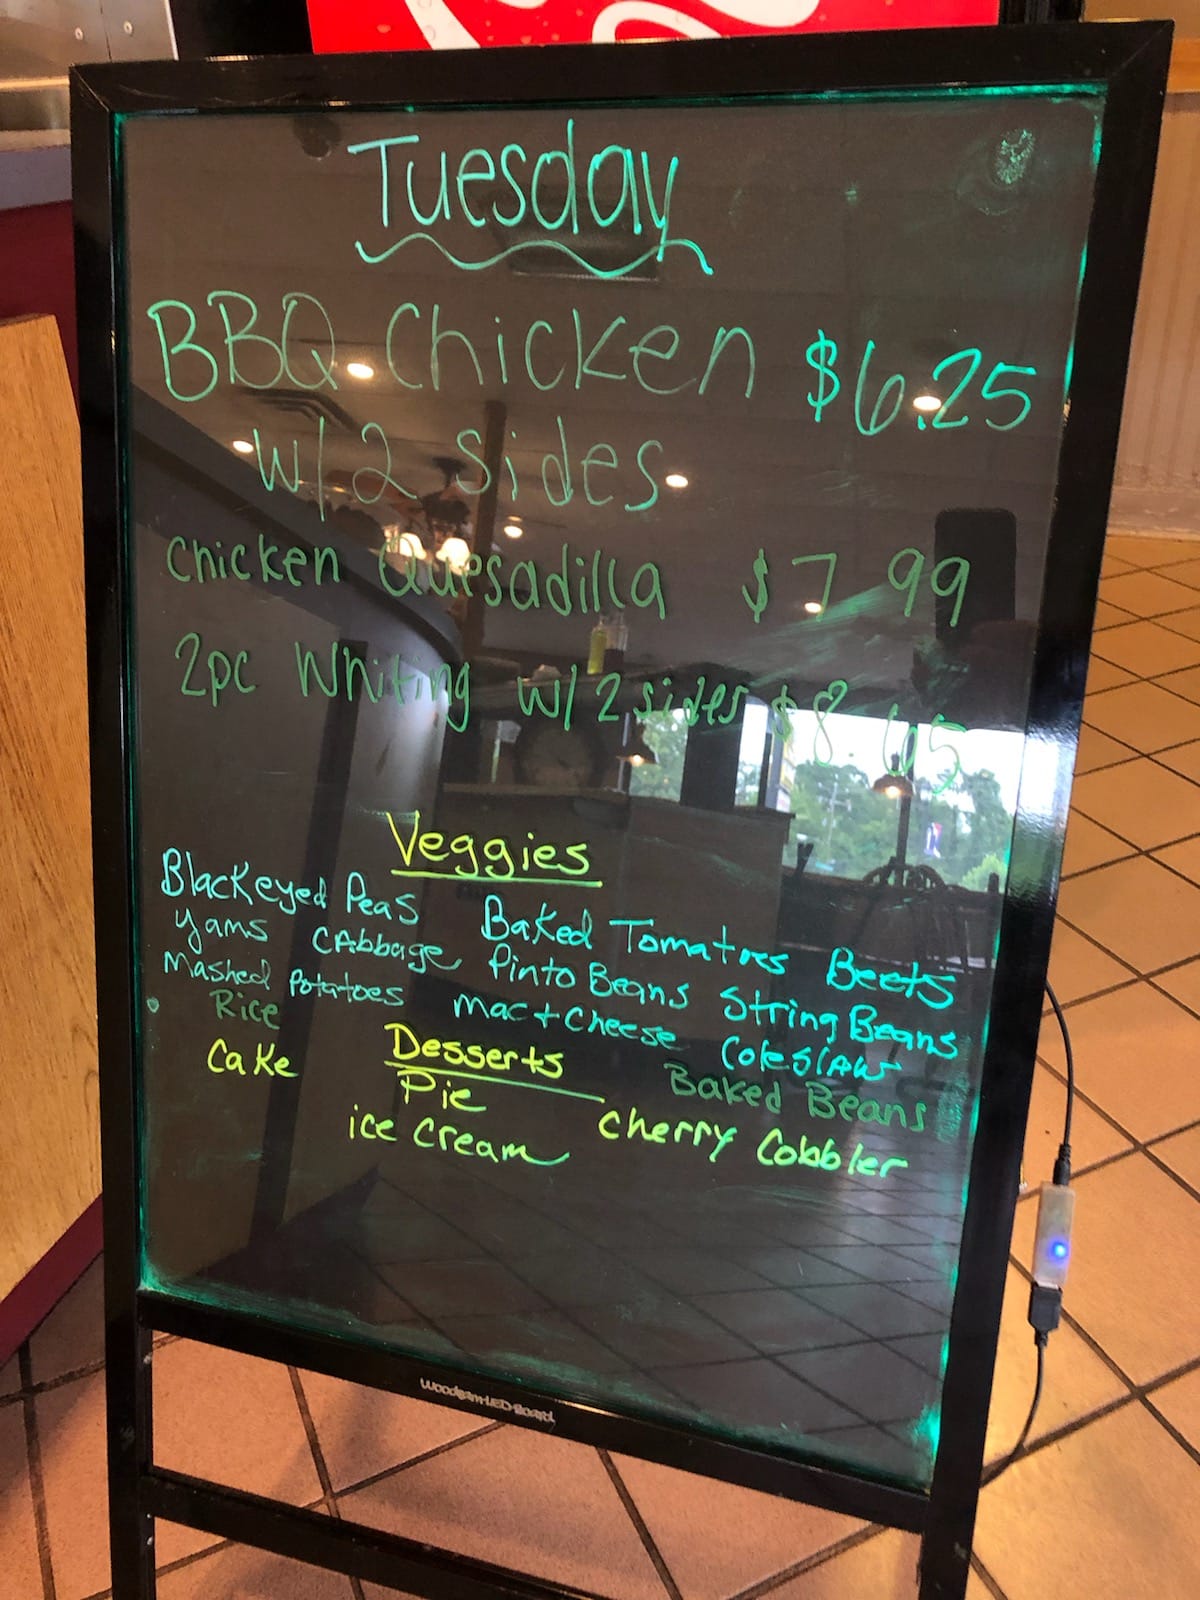 Tuesday
BBQ Chicken $6.25
w/ 2 sides
chicken Quesadilla $7.99
2pc Whiting w/ 2 sides $8.65
Veggies
Blackeyed Peas Baked Tomatoes Beets
Yams CAbbage Pinto Beans String Beans
Mashed Potatoes Mac + Cheese ColeslAw
Rice Baked Beans
Desserts
Cake Pie Cherry Cobbler
ice cream
Woodsam LED Board